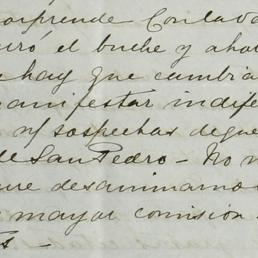 sorprende con la va
uró el buche y aho
hay que cambia
manifestar indife
n/ sospechas de que
de San Pedro - No
ure desanimarno
mayor comision